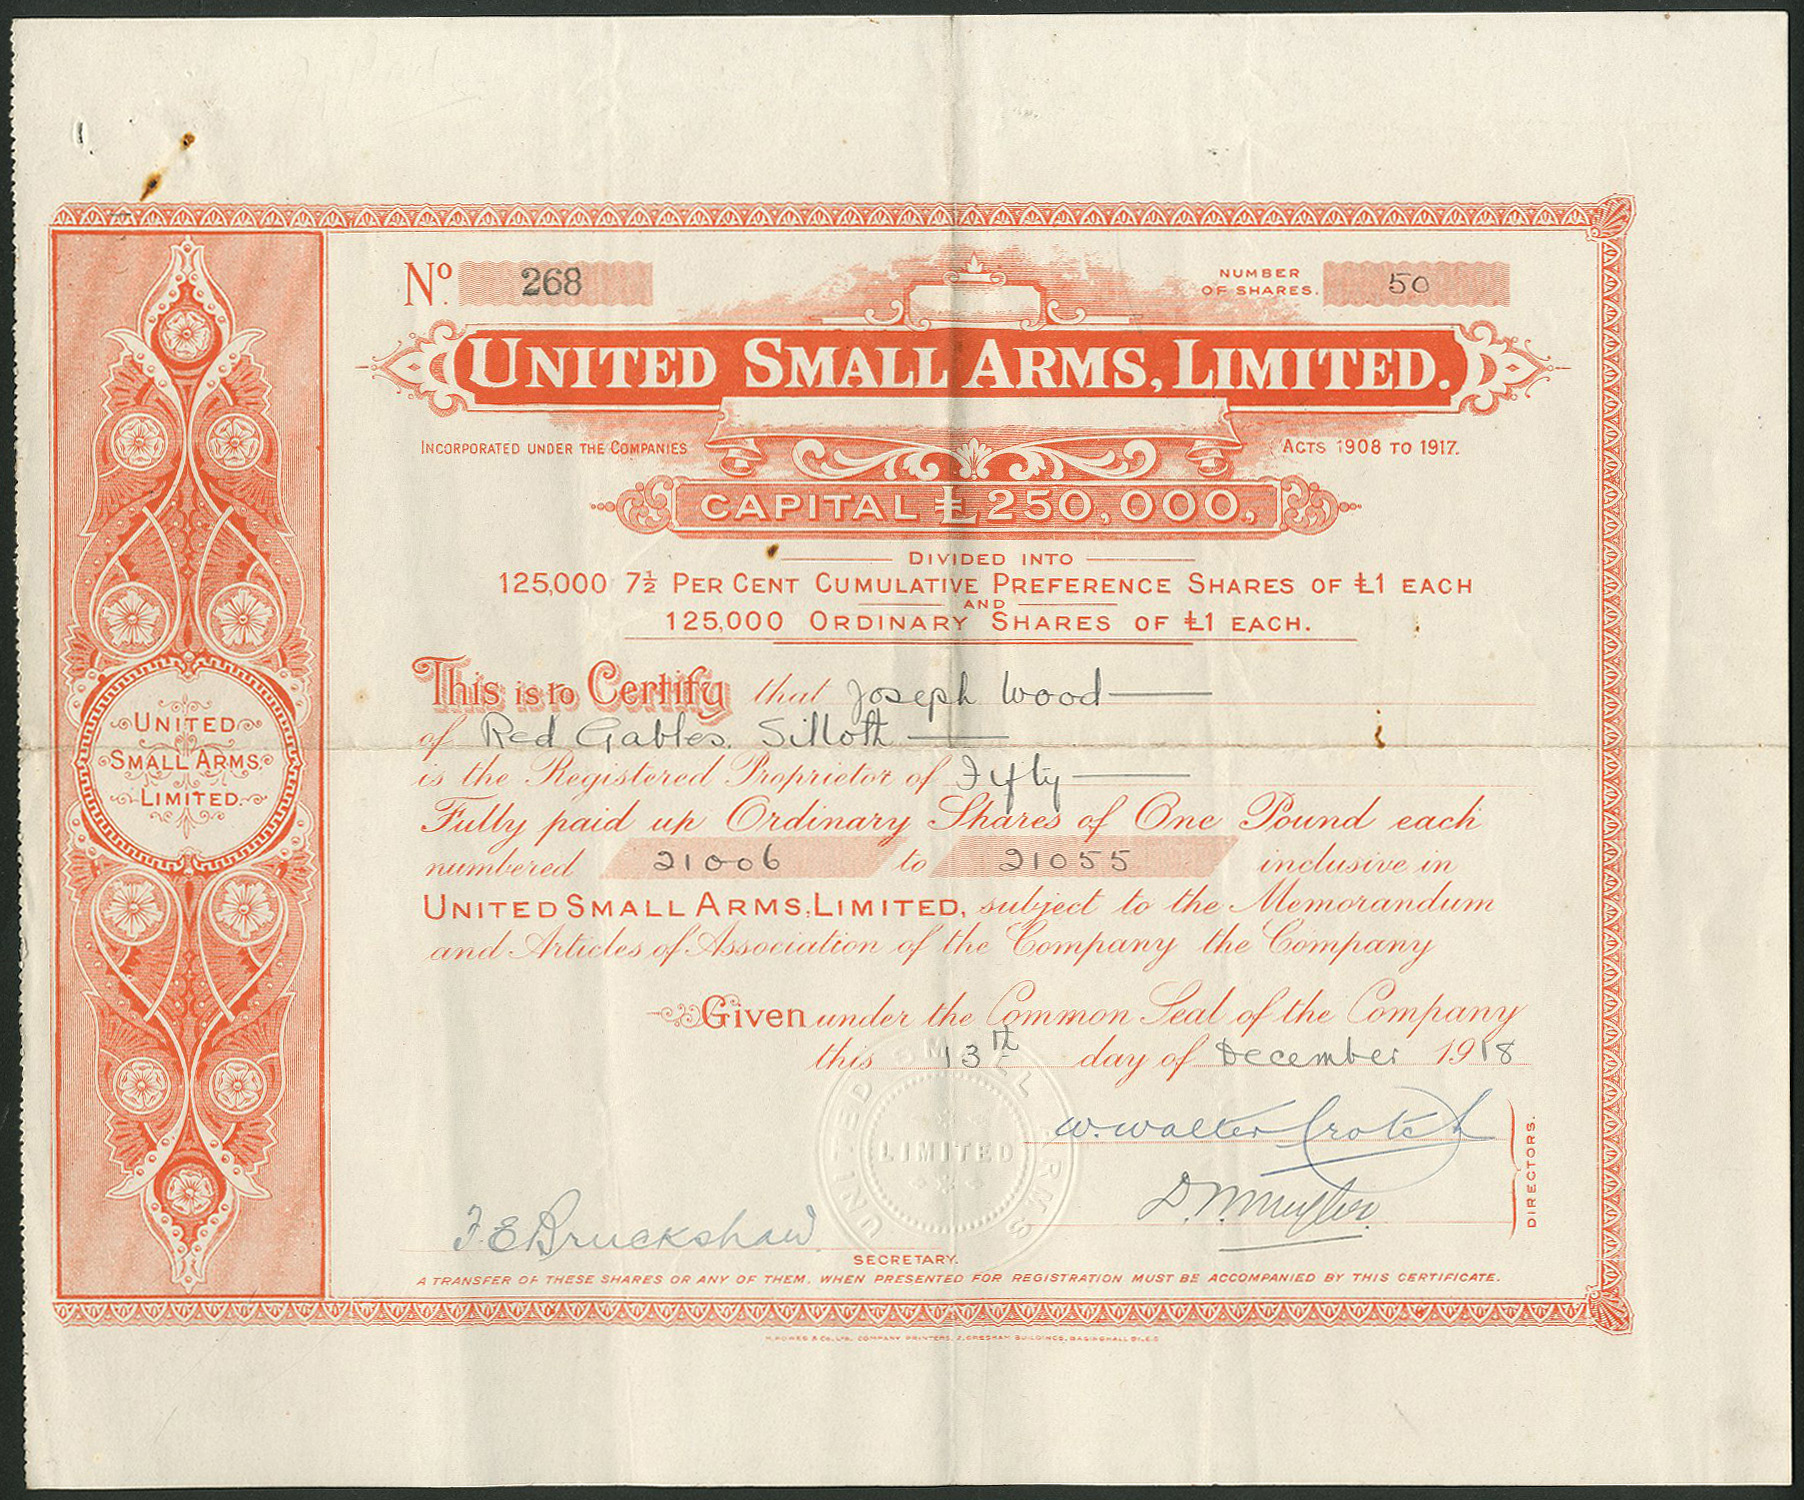 Nº. 268
NUMBER OF SHARES. 50
UNITED SMALL ARMS, LIMITED.
INCORPORATED UNDER THE COMPANIES ACTS 1908 TO 1917.
CAPITAL £250,000,
DIVIDED INTO
125,000 7½ PER CENT CUMULATIVE PREFERENCE SHARES OF £1 EACH
AND
125,000 ORDINARY SHARES OF £1 EACH.
This is to Certify that Joseph Wood
of Red Gables. Silloth
is the Registered Proprietor of Fifty
Fully paid up Ordinary Shares of One Pound each
numbered 21006 to 21055 inclusive in
UNITED SMALL ARMS, LIMITED, subject to the Memorandum
and Articles of Association of the Company the Company
Given under the Common Seal of the Company
this 13th day of December 1918
W. Walter Crotch
DIRECTORS.
F. E. Bruckshaw
SECRETARY.
A TRANSFER OF THESE SHARES OR ANY OF THEM, WHEN PRESENTED FOR REGISTRATION MUST BE ACCOMPANIED BY THIS CERTIFICATE.
COMPANY PRINTERS, 2, GRESHAM BUILDINGS, BASINGHALL ST. E.C
UNITED
SMALL ARMS
LIMITED.
UNITED SMALL ARMS
LIMITED